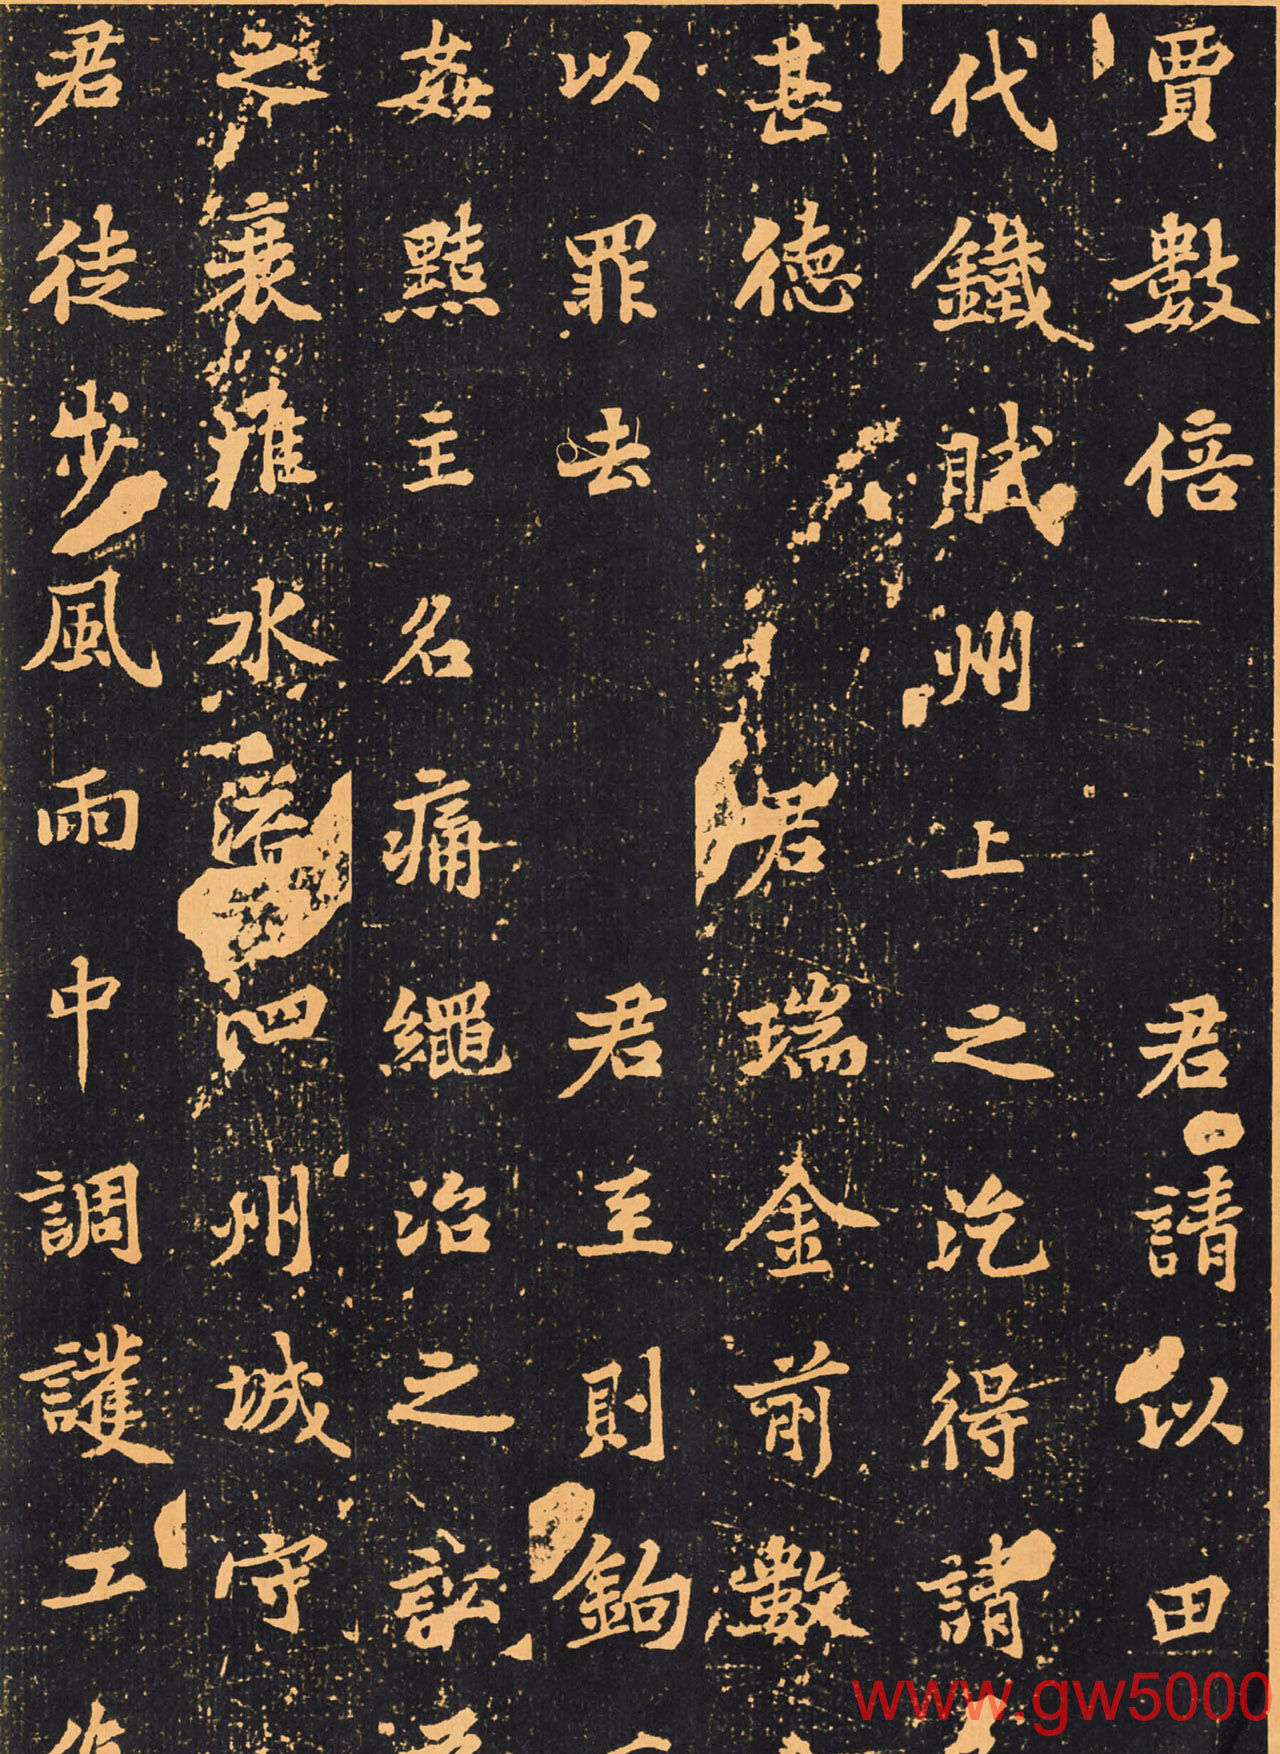 賈數倍君請以田
代鐵賦州上之訖得請
甚德君瑞金前數
以罪去君至則鉤
姦黠主名痛繩治之訟
之衰雍水溢四州城守
君徒步風雨中調護工
www.gw5000